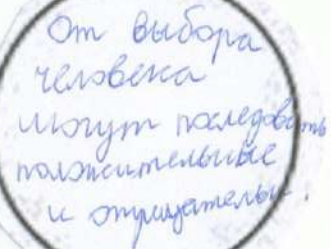 От выбора
человека
могут последовать
положительные
и отрицательн.